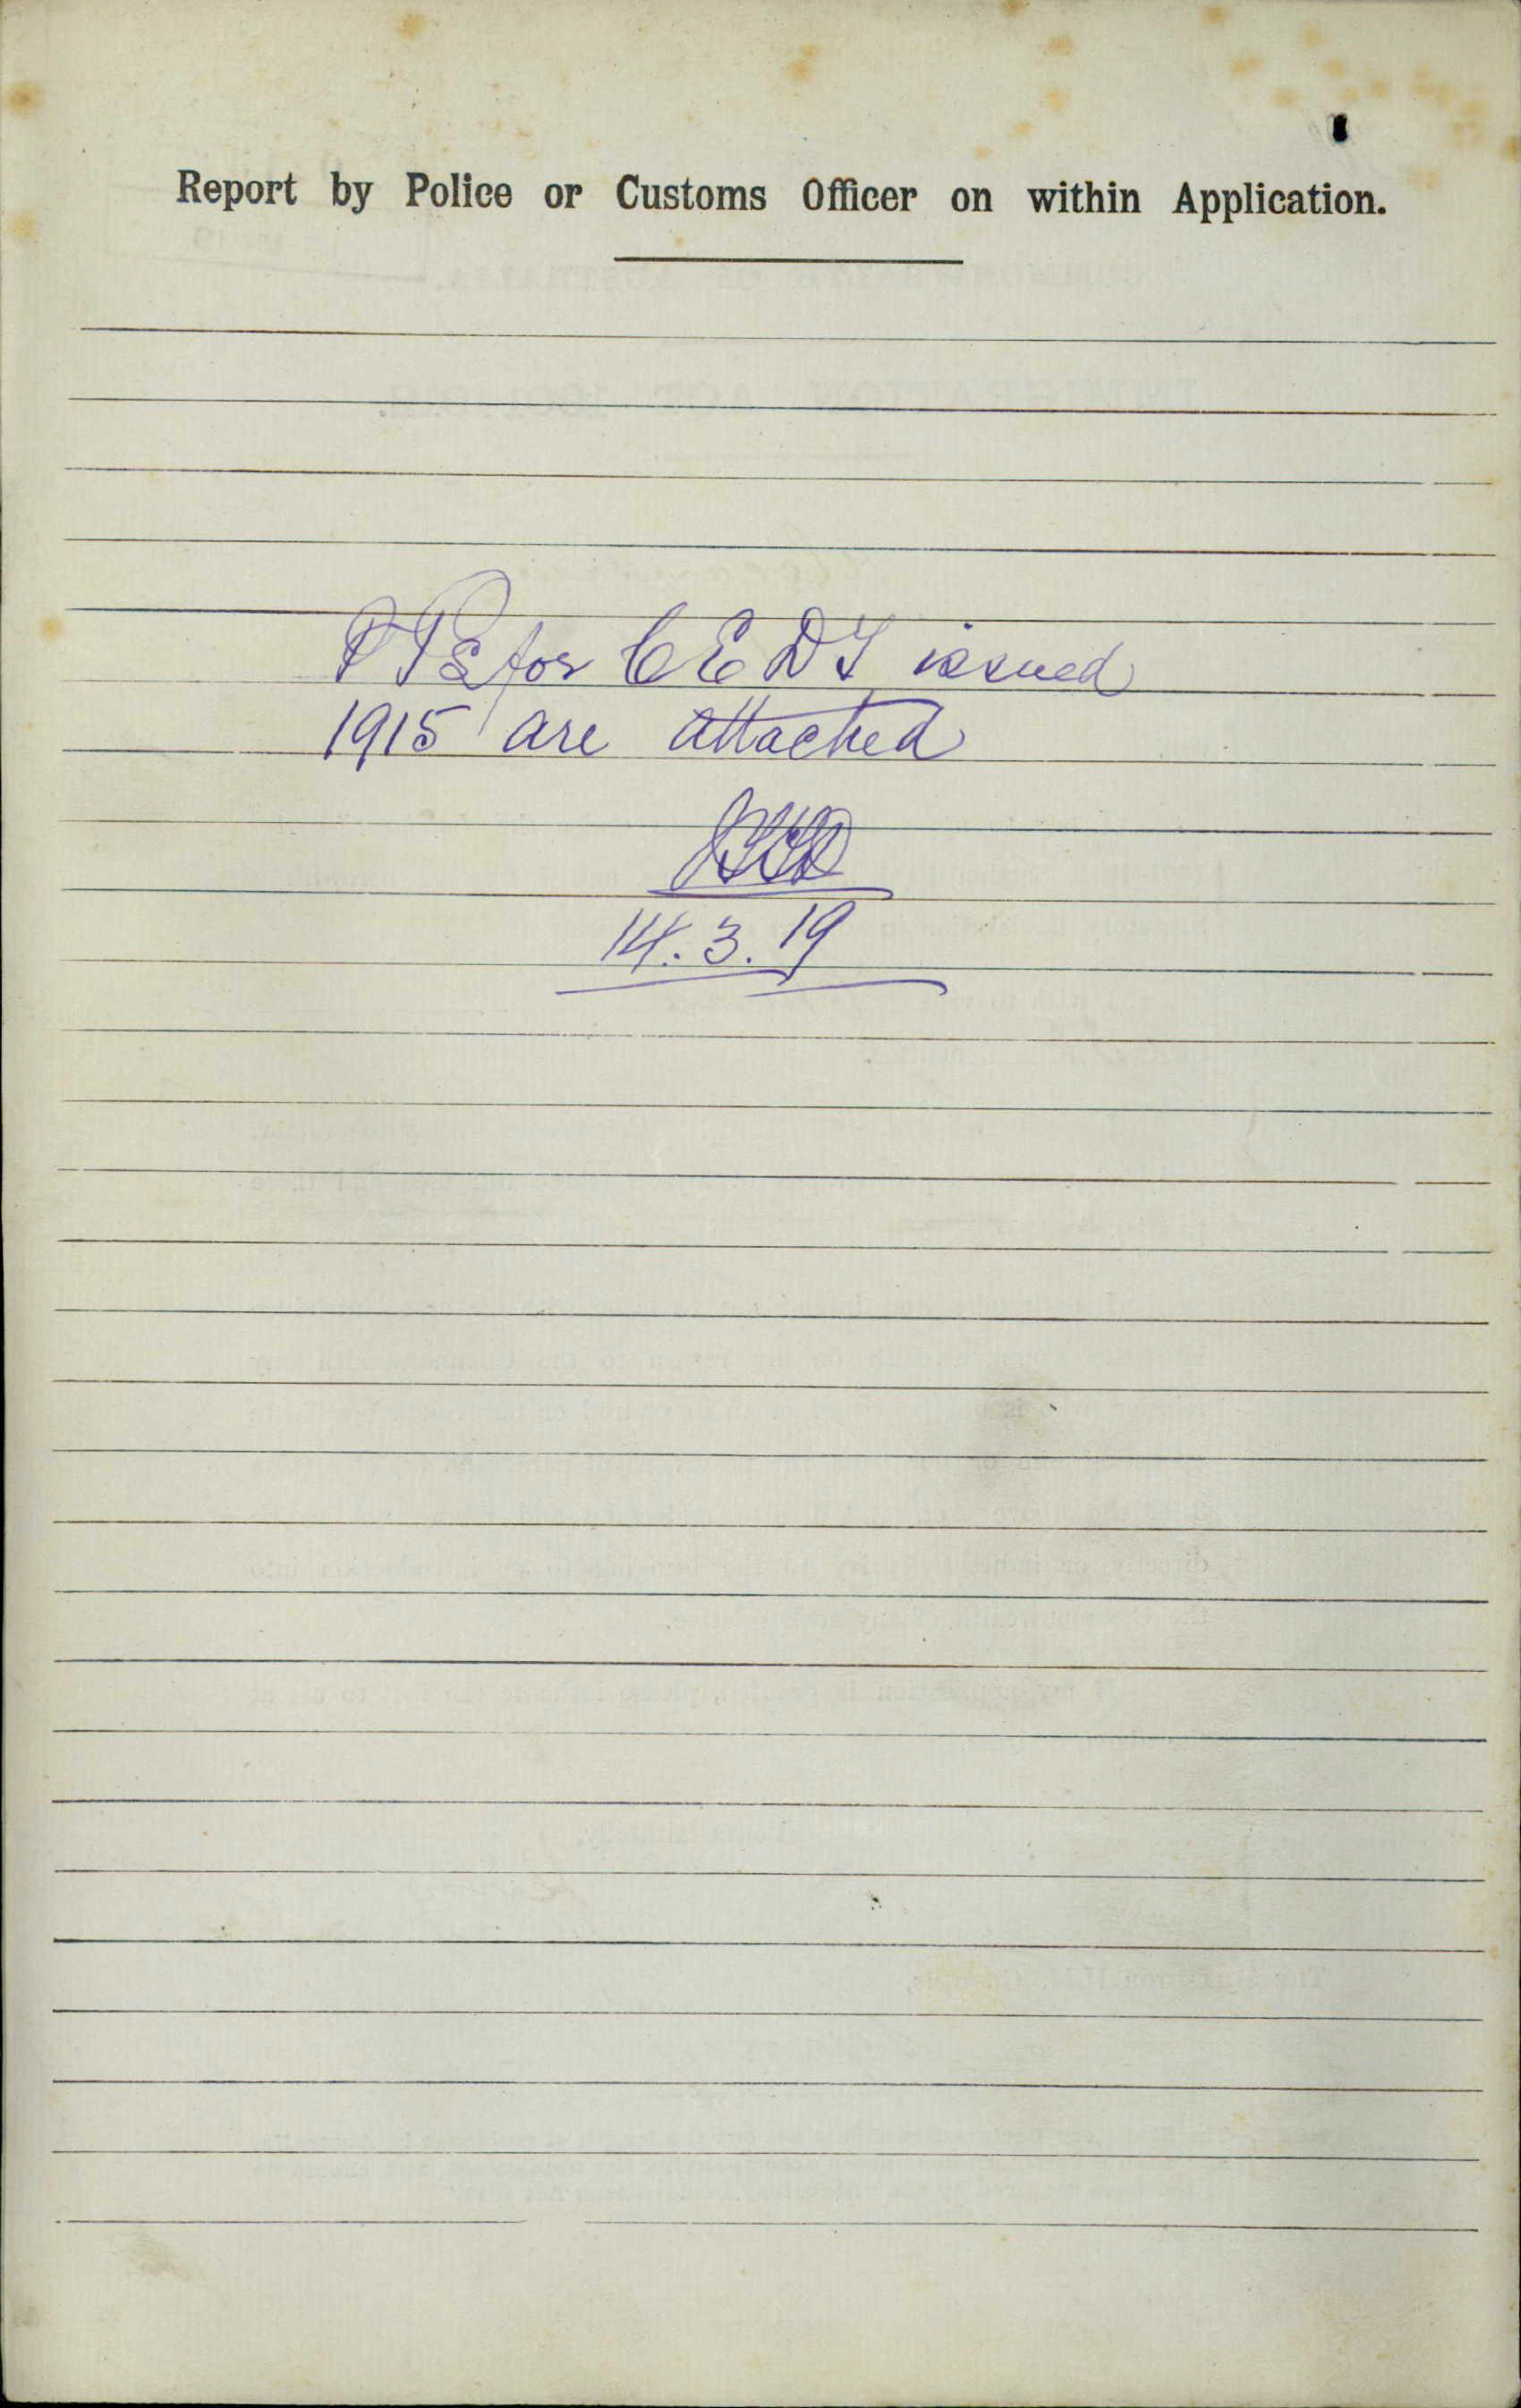 Report by Police or Customs Officer on within Application.
for CEDT issued
1915 are attached
14.3.19